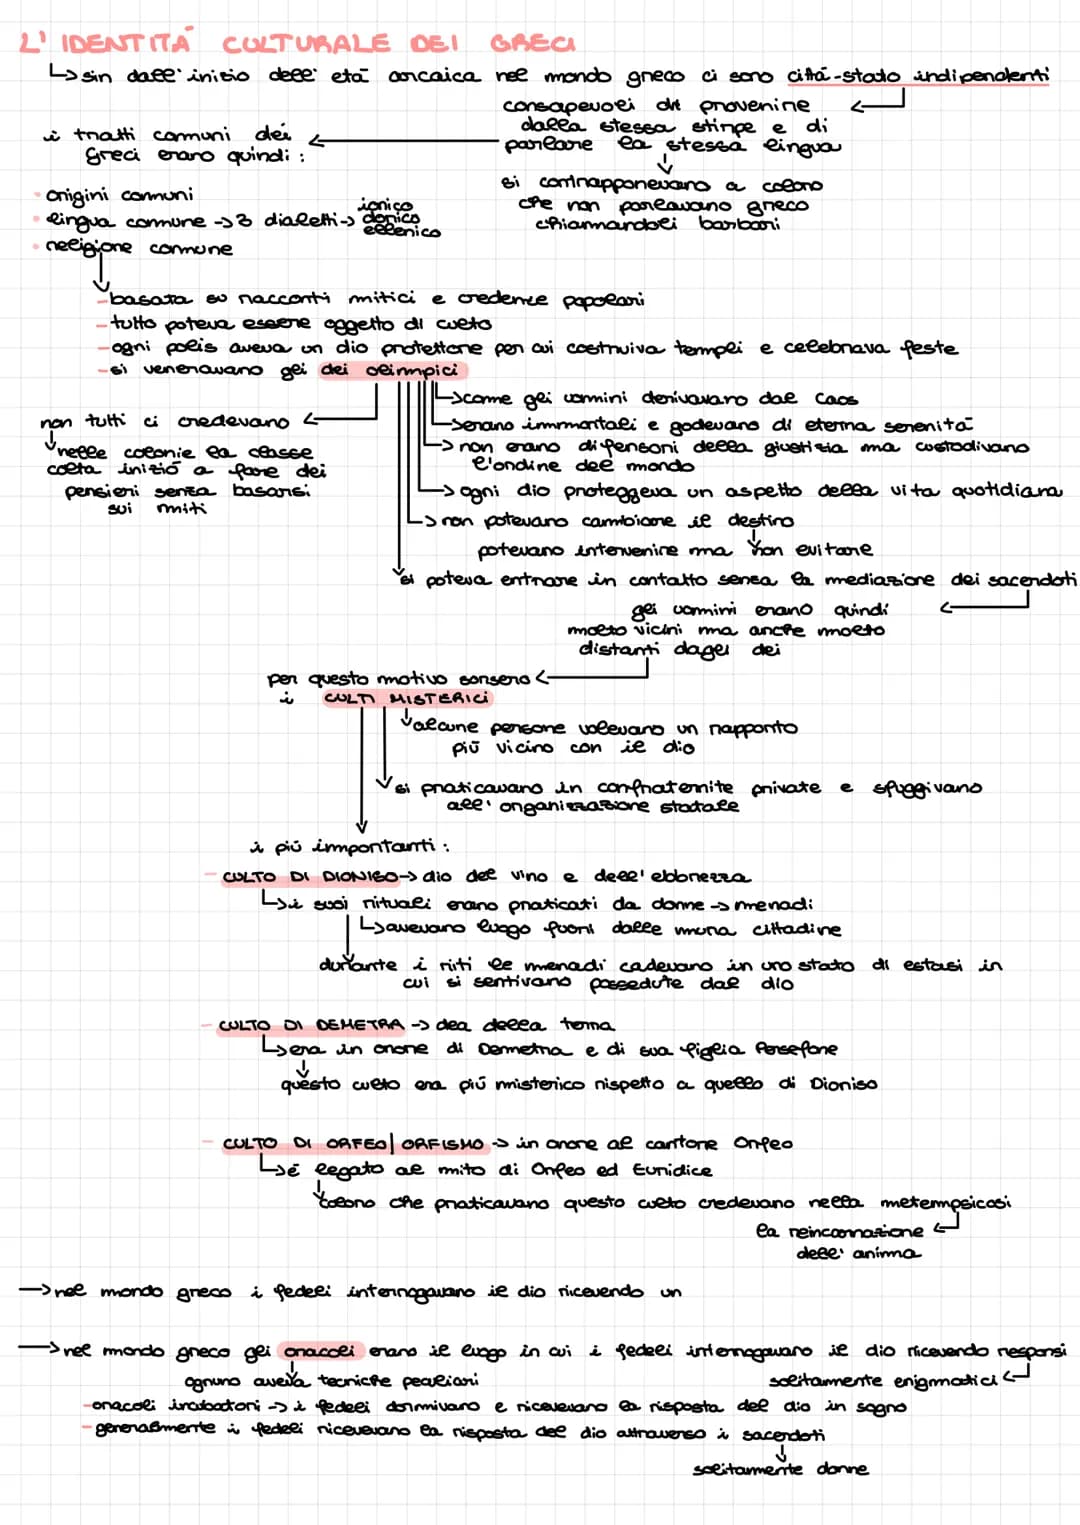 L'IDENTITÀ CULTURALE DEI GRECI
↳ sin dall'inizio dell'età arcaica nel mondo greco ci sono città-stato indipendenti
consapevoli di provenire
dalla stessa stirpe e di
parlare la stessa lingua
si contrapponevano a coloro
che non parlavano greco
chiamandoli barbari
i tratti comuni dei
Greci erano quindi:
- origini comuni
- lingua comune -> 3 dialetti -> ionico
dorico
ellenico
- religione comune
- basata su racconti mitici e credenze popolari
- tutto poteva essere oggetto di culto
- ogni polis aveva un dio protettore per cui costruiva templi e celebrava feste
- si veneravano gli dei olimpici
-> come gli uomini derivavano dal Caos
-> erano immortali e godevano di eterna serenità
-> non erano difensori della giustizia ma custodivano
l'ordine del mondo
-> ogni dio proteggeva un aspetto della vita quotidiana
-> non potevano cambiare il destino
potevano intervenire ma non evitare
si poteva entrare in contatto senza la mediazione dei sacerdoti
non tutti ci credevano
nelle colonie la classe
colta iniziò a fare dei
pensieri senza basarsi
sui miti
gli uomini erano quindi
molto vicini ma anche molto
distanti dagli dei
per questo motivo sorsero
i CULTI MISTERICI
alcune persone volevano un rapporto
più vicino con il dio
si praticavano in confraternite private e sfuggivano
all'organizzazione statale
i più importanti:
- CULTO DI DIONISO -> dio del vino e dell'ebbrezza
↳ i suoi rituali erano praticati da donne -> menadi
↳ avevano luogo fuori dalle mura cittadine
durante i riti le menadi cadevano in uno stato di estasi in
cui si sentivano possedute dal dio
- CULTO DI DEMETRA -> dea della terra
↳ era in onore di Demetra e di sua figlia Persefone
questo culto era più misterico rispetto a quello di Dioniso
- CULTO DI ORFEO/ORFISMO -> in onore al cantore Orfeo
↳ è legato al mito di Orfeo ed Euridice
coloro che praticavano questo culto credevano nella metempsicosi
la reincarnazione
dell'anima
-> nel mondo greco i fedeli interrogavano il dio ricevendo un
-> nel mondo greco gli oracoli erano il luogo in cui i fedeli interrogavano il dio ricevendo responsi
ognuno aveva tecniche peculiari
solitamente enigmatici
- oracoli incubatori -> i fedeli dormivano e ricevevano la risposta del dio in sogno
- generalmente i fedeli ricevevano la risposta del dio attraverso i sacerdoti
solitamente donne